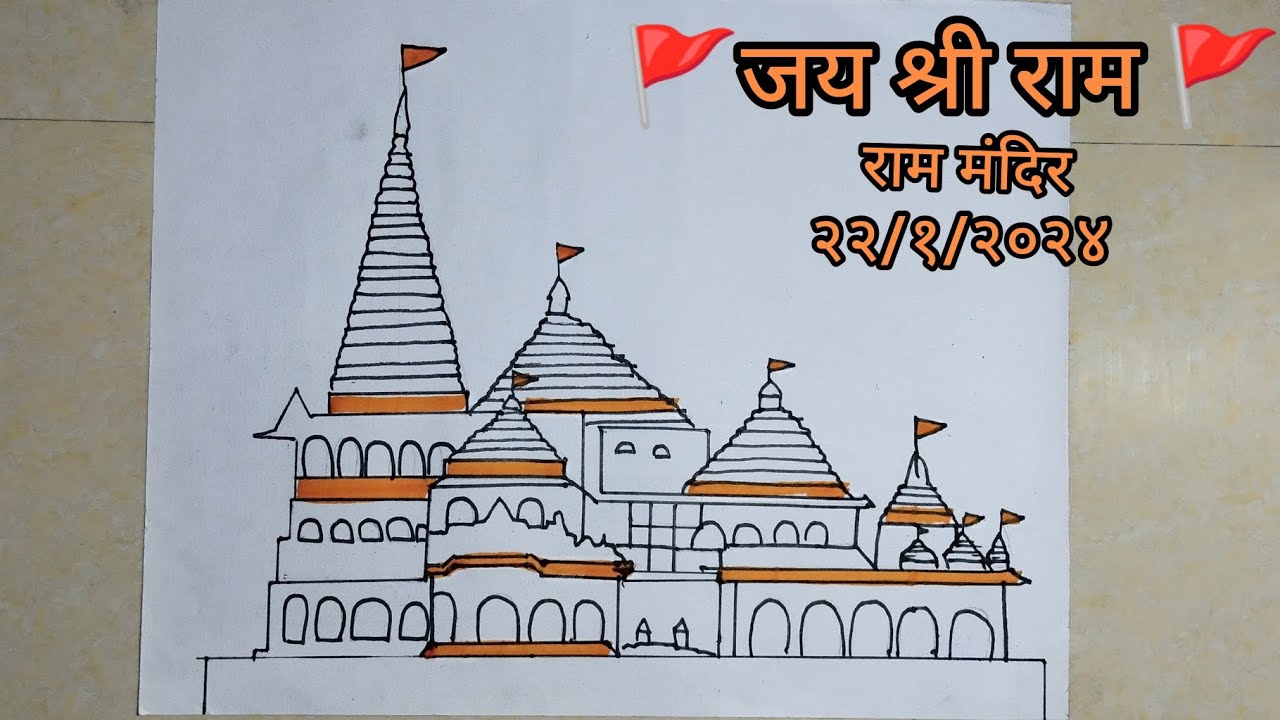 जय श्री राम
राम मंदिर
२२/१/२०२४